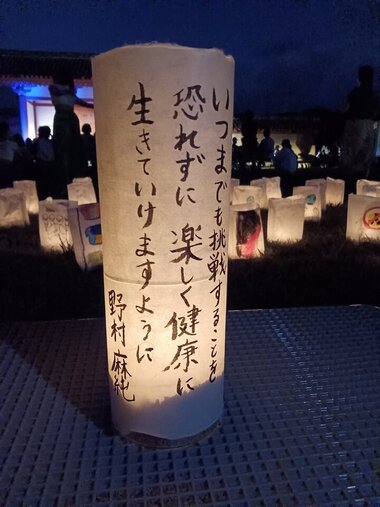 いつまでも挑戦することを
恐れずに 楽しく健康に
生きていけますように
野村 麻純